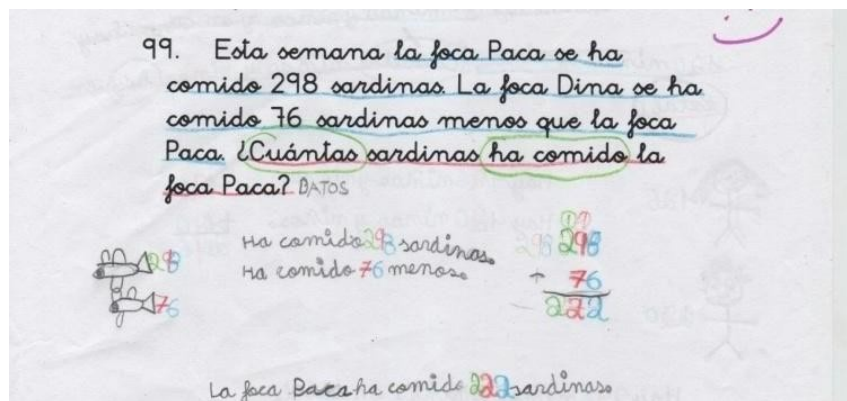 99. Esta semana la foca Paca se ha
comido 298 sardinas. La foca Dina se ha
comido 76 sardinas menos que la foca
Paca. ¿Cuántas sardinas ha comido la
foca Paca? DATOS
298
76
Ha comido 298 sardinas.
Ha comido 76 menos.
298
+ 76
222
La foca Paca ha comido 222 sardinas.